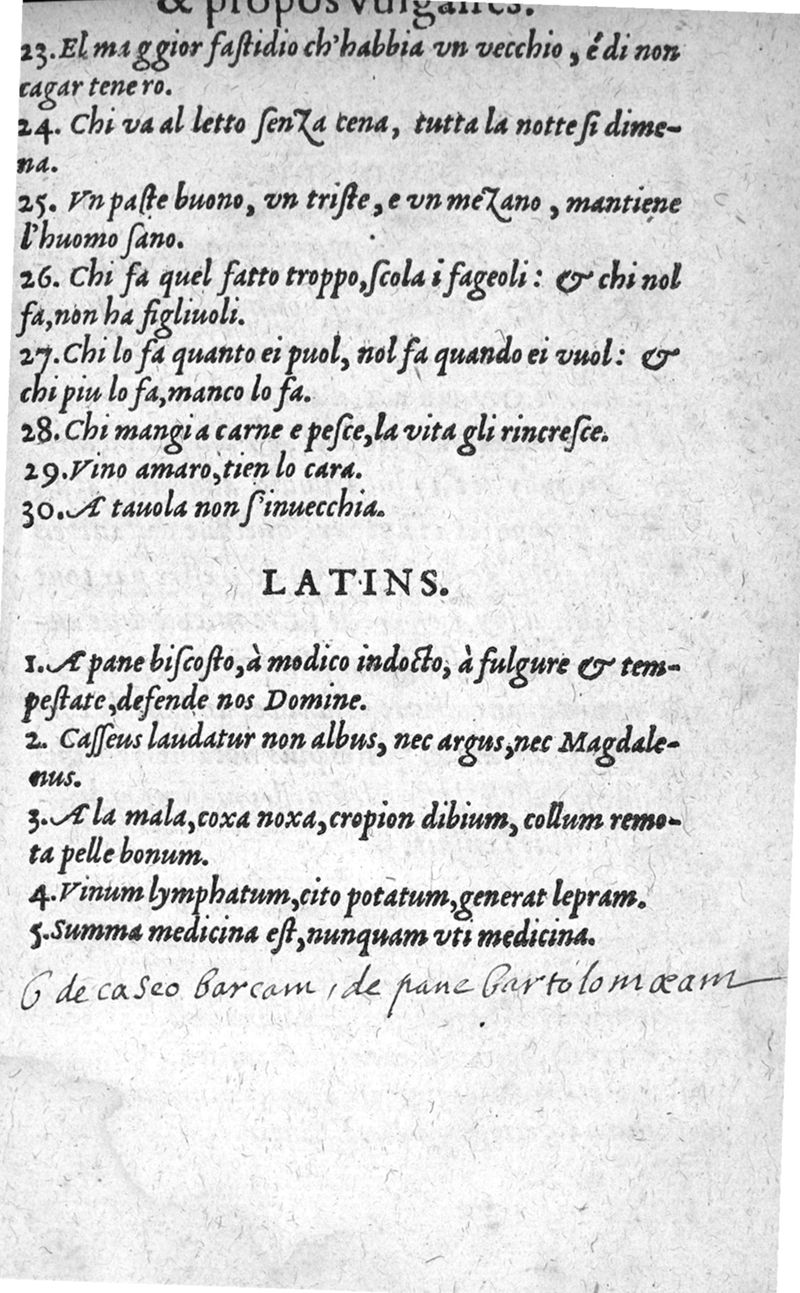 & propos vulgaires.
23. El maggior fastidio ch'habbia vn vecchio, é di non
cagar tenero.
24. Chi va al letto senza cena, tutta la notte si dime-
na.
25. Vn paste buono, vn triste, e vn mezano, mantiene
l'huomo sano.
26. Chi fa quel fatto troppo, scola i fageoli: & chi nol
fa, non ha figliuoli.
27. Chi lo fa quanto ei puol, nol fa quando ei vuol: &
chi piu lo fa, manco lo fa.
28. Chi mangia carne e pesce, la vita gli rincresce.
29. Vino amaro, tien lo cara.
30. A tauola non s'inuecchia.
LATINS.
1. A pane biscosto, à modico indocto, à fulgure & tem-
pestate, defende nos Domine.
2. Casseus laudatur non albus, nec argus, nec Magdale-
nus.
3. A la mala, coxa noxa, cropion dibium, collum remo-
ta pelle bonum.
4. Vinum lymphatum, cito potatum, generat lepram.
5. Summa medicina est, nunquam vti medicina.
6 de caseo barcam, de pane bartolomæam